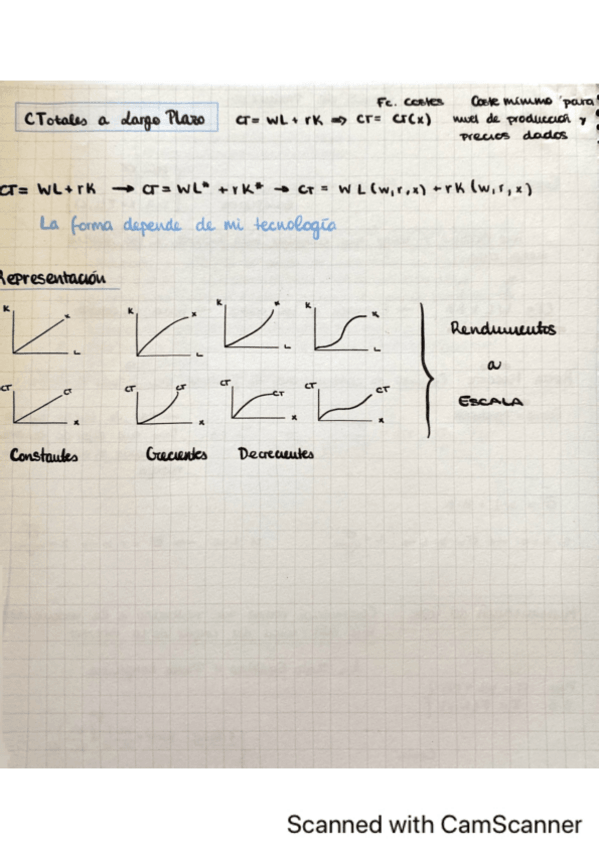 Fc. costes   Coste mínimo para
CTotales a Largo Plazo   CT = WL + rK ⇒ CT = CT(x)   nivel de producción y
precios dados
CT = WL + rK → CT = WL* + rK* → CT = W L (w, r, x) + r K (w, r, x)
La forma depende de mi tecnología
Representación
K   x   K   x   K   x   K   x
L   L   L   L
Rendimientos
a
ESCALA
CT   CT   CT   CT   CT   CT   CT   CT
x   x   x   x
Constantes   Crecientes   Decrecientes
Scanned with CamScanner